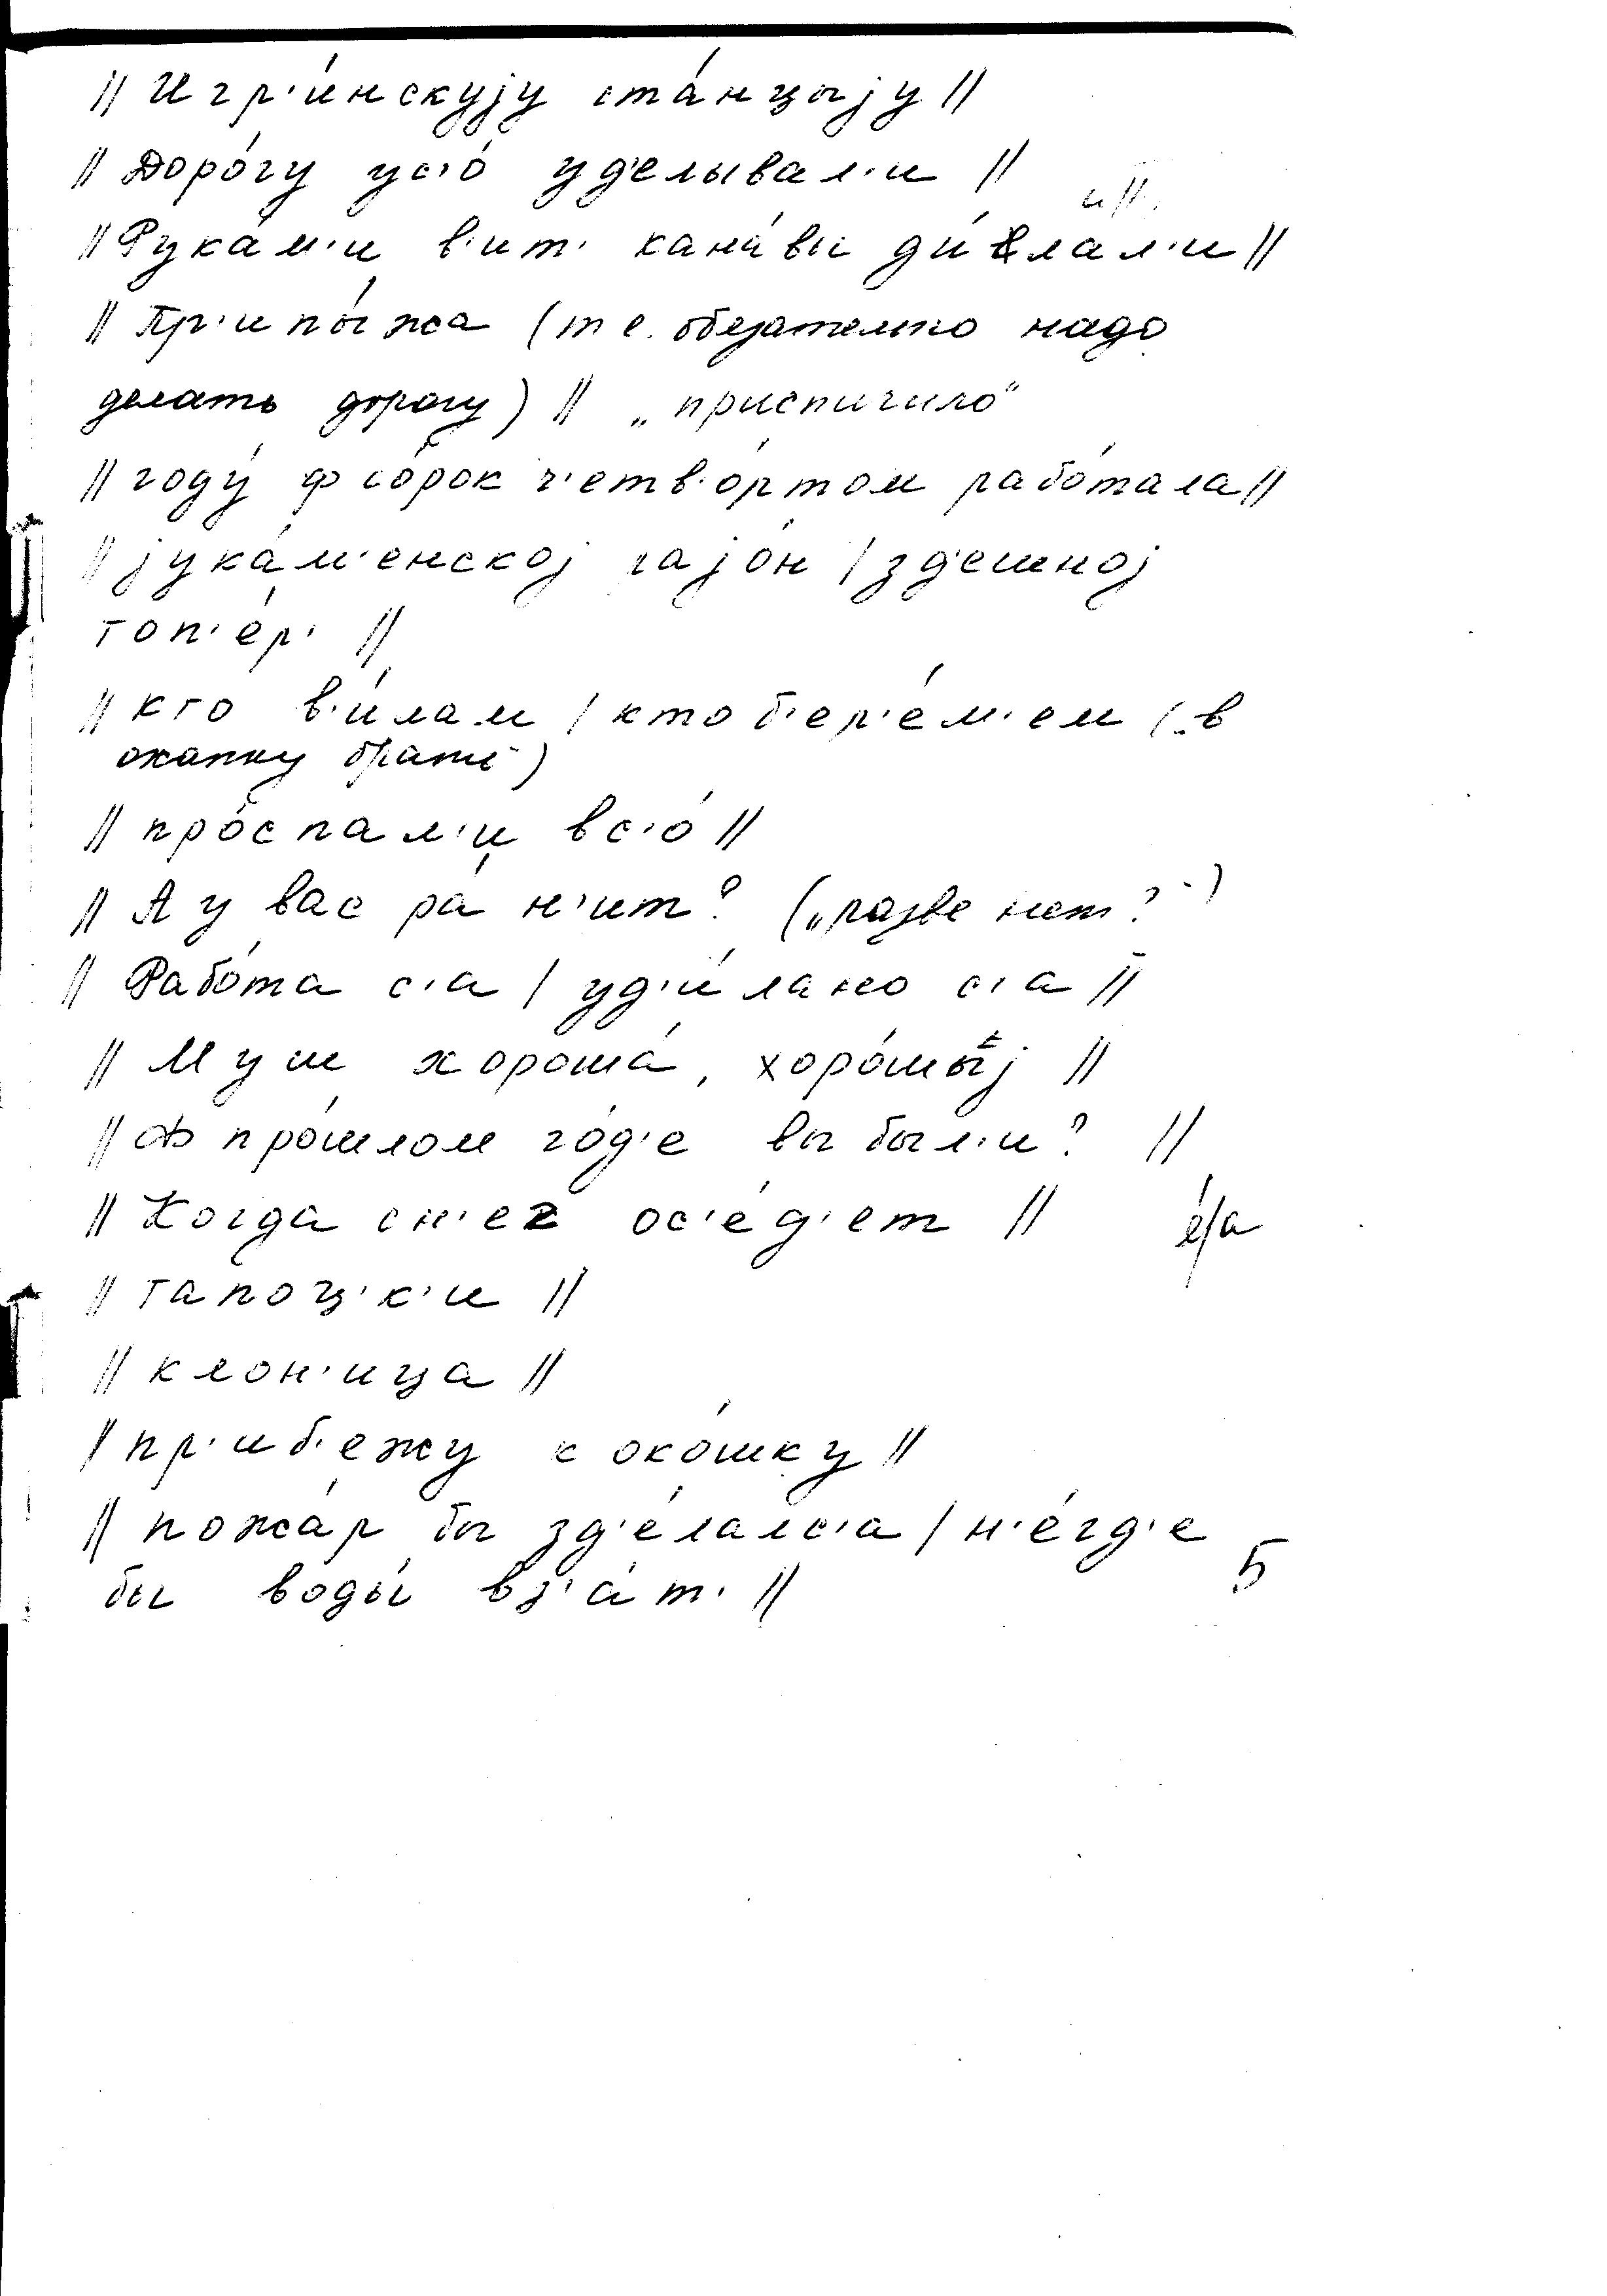 || Игр'и́нскуjу ста́нцыjу ||
|| Доро́гу ус'о́ уд'елывал'и ||
и ||
|| Рука́м'и в'ит' кана́вы ди́елал'и ||
|| Пр'ипы́жа (т е. обязательно надо
делать дорогу) || „приспичило“
|| году́ ф со́рок ч'етв'о́ртом рабо́тала ||
|| jука́м'енскоj раjо́н / зд'ешноj
топ'е́р' ||
|| кто в'и́лам / кто б'ер'е́м'ем („в
охапку брать“)
|| про́спал'и вс'о́ ||
|| А у вас ра́ н'ит? („разве нет?“)
|| Рабо́та с'а / уд'и́лано с'а ||
|| Муш хороша́, хоро́шыj ||
|| Ф про́шлом го́д'е вы был'и? ||
|| Когда сн'ег ос'е́д'ет || е́/а
|| тапоц'к'и ||
|| клон'ица ||
| пр'иб'ежу к око́шку ||
|| пожа́р бы зд'е́лалс'а / н'е́гд'е
бы воды́ вз'а́т' || 5